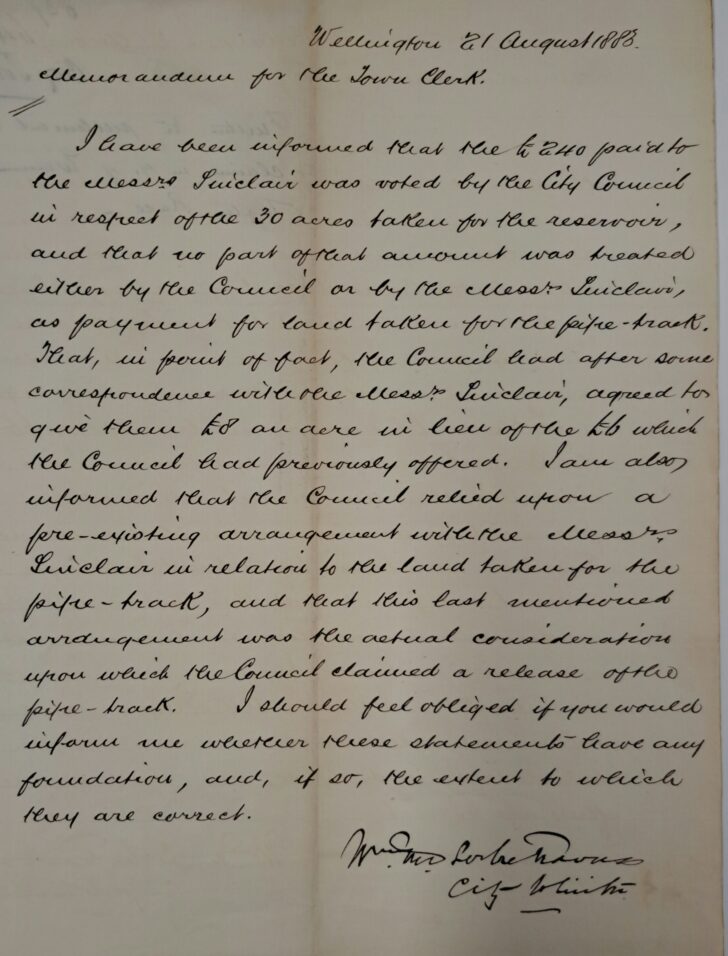 Wellington 21 August 1883.
Memorandum for the Town Clerk.
I have been informed that the £240 paid to
the Messrs Sinclair was voted by the City Council
in respect of the 30 acres taken for the reservoir,
and that no part of that amount was treated
either by the Council or by the Messrs Sinclair,
as payment for land taken for the pipe-track.
That, in point of fact, the Council had after some
correspondence with the Messrs Sinclair, agreed to
give them £8 an acre in lieu of the £6 which
the Council had previously offered. I am also
informed that the Council relied upon a
pre-existing arrangement with the Messrs
Sinclair in relation to the land taken for the
pipe-track, and that this last mentioned
arrangement was the actual consideration
upon which the Council claimed a release of the
pipe-track. I should feel obliged if you would
inform me whether these statements have any
foundation, and, if so, the extent to which
they are correct.
Wm Thos Locke Travers
City Solicitor